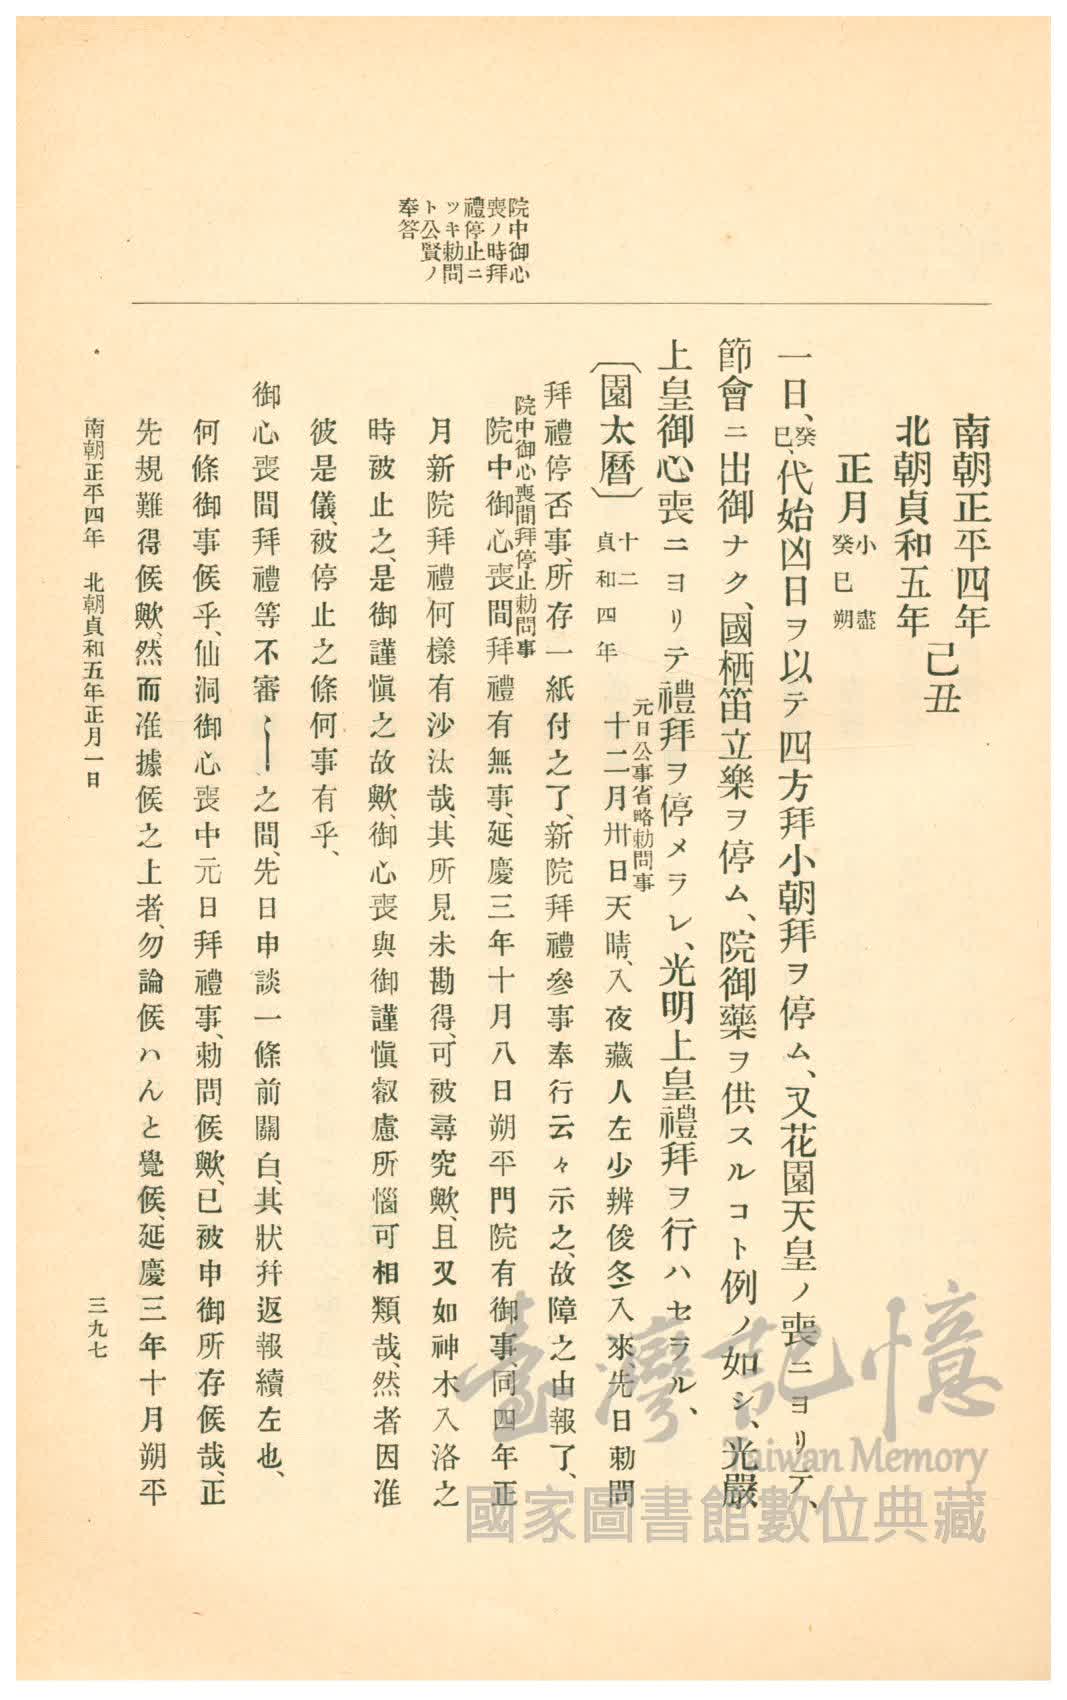 南朝正平四年
北朝貞和五年
己丑
正月小盡
癸巳朔
一日、癸巳、代始凶日ヲ以テ四方拜小朝拜ヲ停ム、又花園天皇ノ喪ニヨリテ、
節會ニ出御ナク、國栖笛立樂ヲ停ム、院御藥ヲ供スルコト例ノ如シ、光嚴
上皇御心喪ニヨリテ禮拜ヲ停メラレ、光明上皇禮拜ヲ行ハセラル、
元日公事省略勅問事
〔園太曆〕十二
貞和四年
十二月卅日天晴、入夜藏人左少辨俊冬入來、先日勅問
拜禮停否事、所存一紙付之了、新院拜禮參事奉行云々示之、故障之由報了、
院中御心喪間拜停止勅問事
院中御心喪間拜禮有無事、延慶三年十月八日朔平門院有御事、同四年正
月新院拜禮何樣有沙汰哉、其所見未勘得、可被尋究歟、且又如神木入洛之
時被止之、是御謹愼之故歟、御心喪與御謹愼叡慮所惱可相類哉、然者因准
彼是儀、被停止之條何事有乎、
御心喪間拜禮等不審〱之間、先日申談一條前關白、其狀幷返報續左也、
何條御事候乎、仙洞御心喪中元日拜禮事、勅問候歟、已被申御所存候哉、正
先規難得候歟、然而准據候之上者、勿論候ハんと覺候、延慶三年十月朔平
院中御心
喪ノ時拜
禮停止ニ
ツキ勅問
ト公賢ノ
奉答
南朝正平四年 北朝貞和五年正月一日
三九七
臺灣記憶
Taiwan Memory
國家圖書館數位典藏